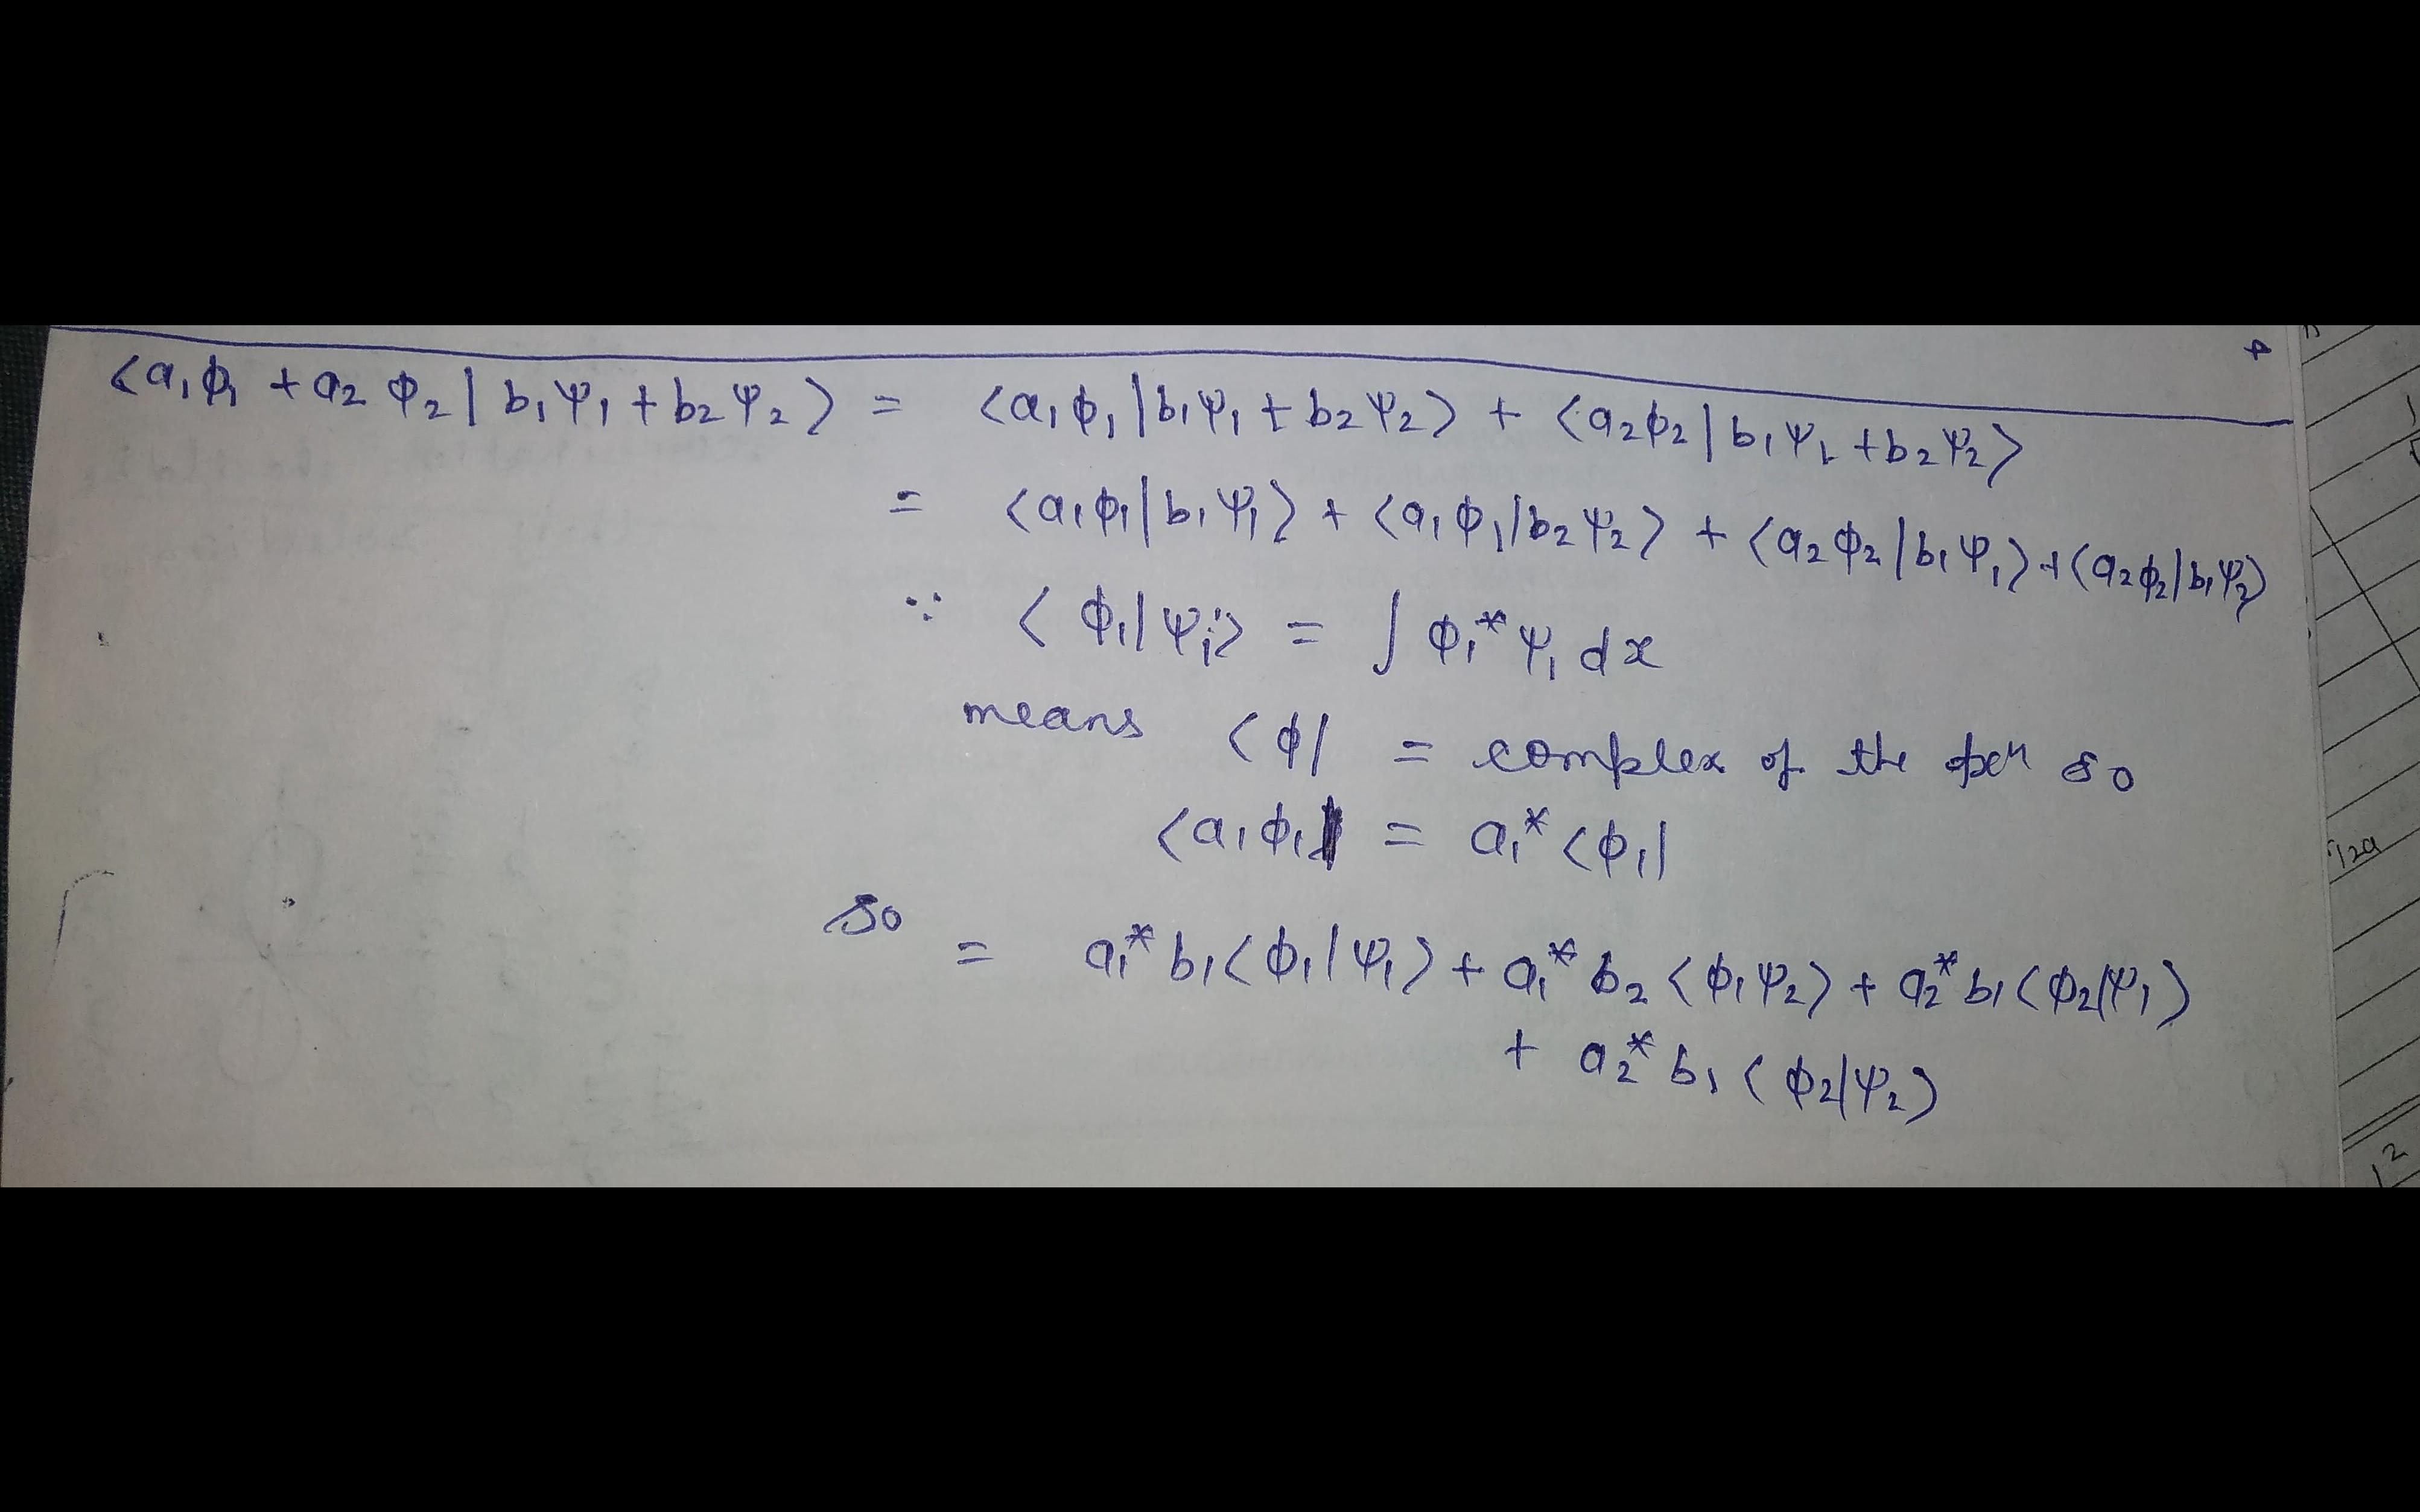 <a₁ϕ₁ + a₂ ϕ₂ | b₁Ψ₁ + b₂Ψ₂> = <a₁ϕ₁|b₁Ψ₁ + b₂Ψ₂> + <a₂ϕ₂|b₁Ψ₁ + b₂Ψ₂>
= <a₁ϕ₁|b₁Ψ₁> + <a₁ϕ₁|b₂Ψ₂> + <a₂ϕ₂|b₁Ψ₁> + <a₂ϕ₂|b₁Ψ₂>
∵ <ϕ₁|Ψ₁> = ∫ ϕ₁* Ψ₁ dx
means <ϕ| = complex of the so
<a₁ϕ₁| = a₁* <ϕ₁|
so = a₁* b₁<ϕ₁|Ψ₁> + a₁* b₂ <ϕ₁Ψ₂> + a₂* b₁<ϕ₂|Ψ₁>
+ a₂* b₁ <ϕ₂|Ψ₂>